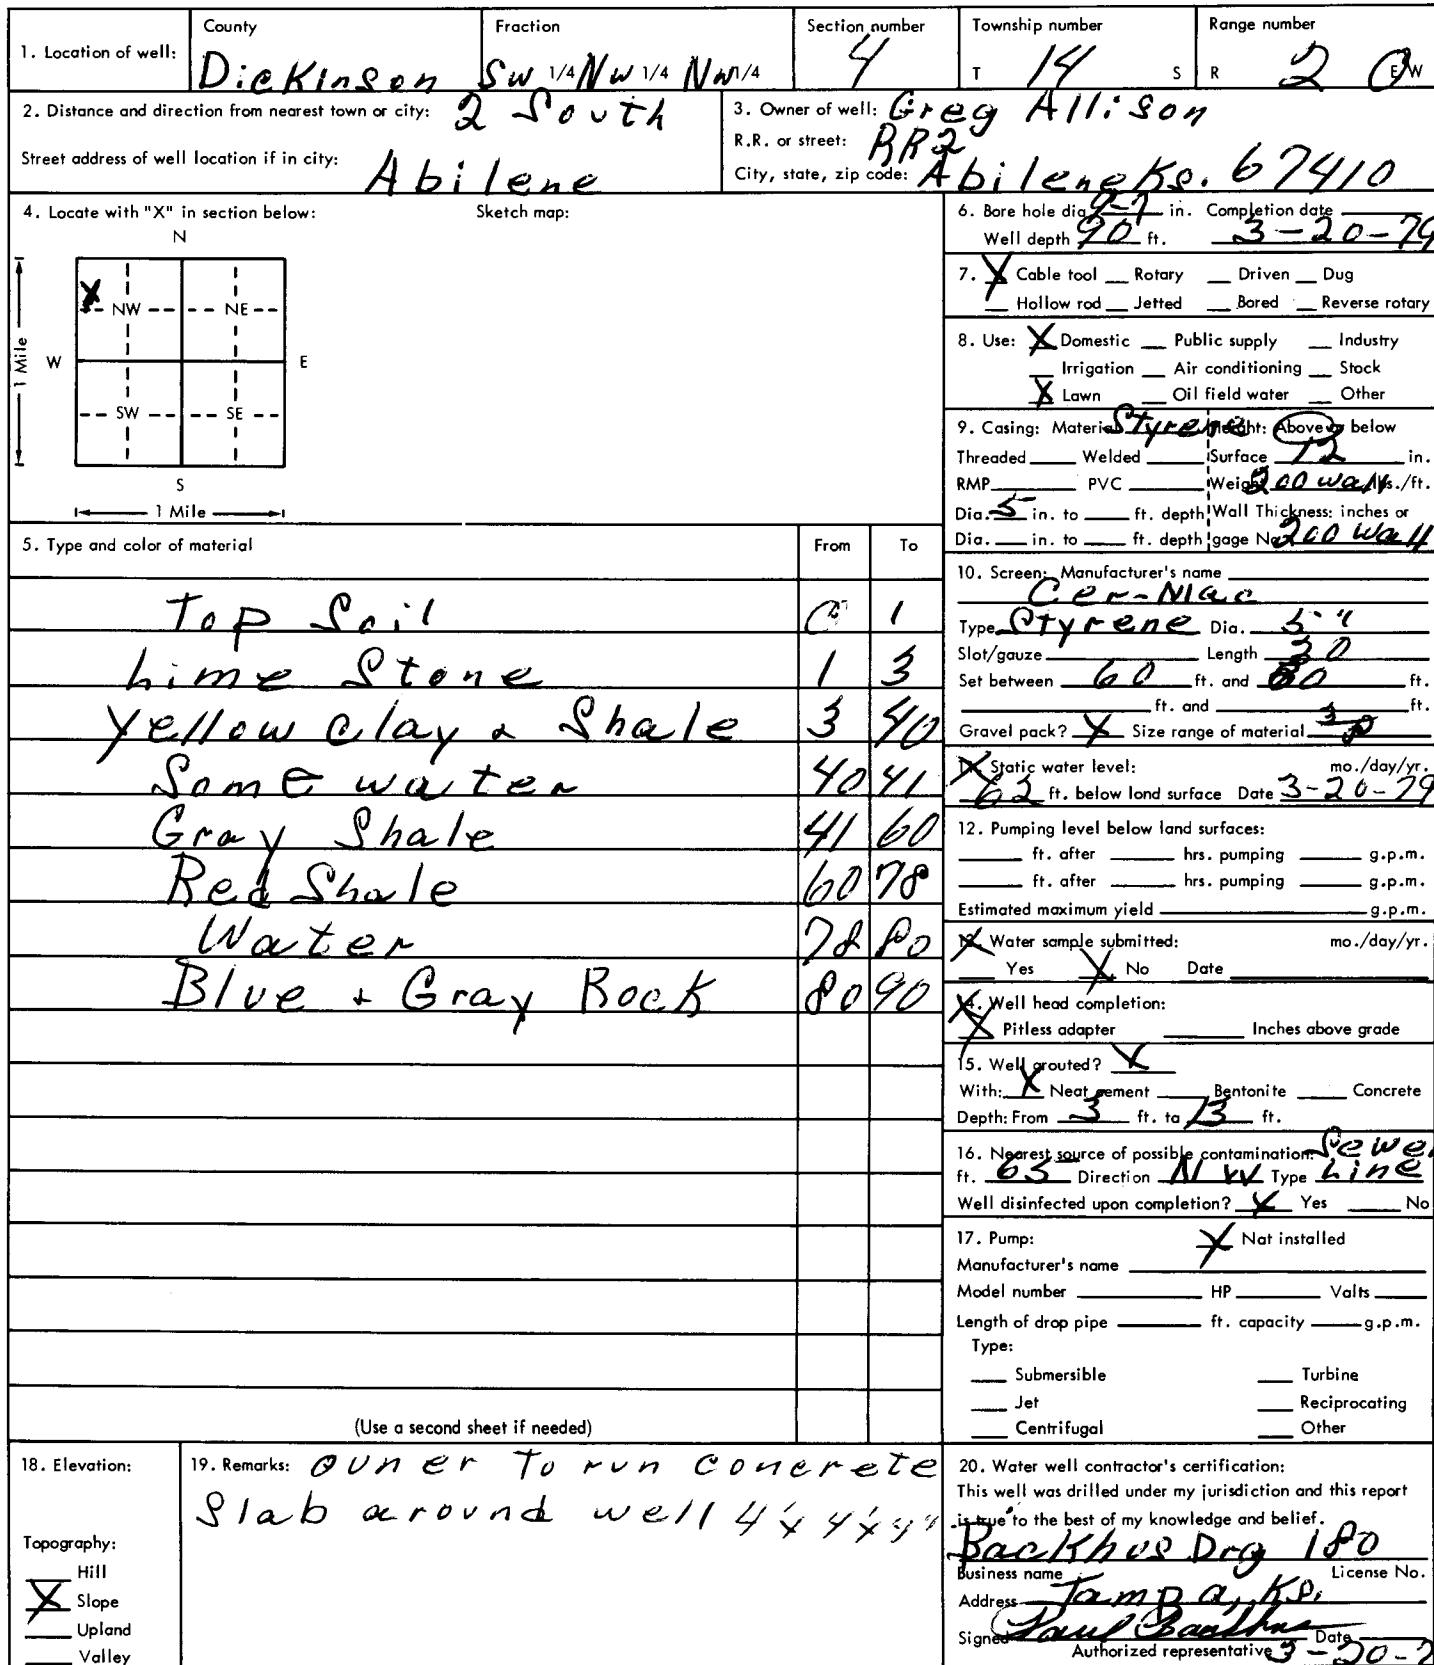 1. Location of well:
County
Dickinson
Fraction
SW 1/4 NW 1/4 NW 1/4
Section number
4
Township number
T 14 S
Range number
R 2 E W
2. Distance and direction from nearest town or city: 2 South
Street address of well location if in city: Abilene
3. Owner of well: Greg Allison
R.R. or street: RR2
City, state, zip code: Abilene Ks. 67410
4. Locate with "X" in section below:
Sketch map:
N
X
NW NE
W E
SW SE
S
1 Mile
1 Mile
5. Type and color of material From To
Top Soil 0 1
Lime Stone 1 3
Yellow Clay & Shale 3 40
Some water 40 41
Gray Shale 41 60
Red Shale 60 78
Water 78 80
Blue + Gray Rock 80 90
(Use a second sheet if needed)
6. Bore hole dia. 9-7 in. Completion date
Well depth 90 ft. 3-20-79
7. X Cable tool Rotary Driven Dug
Hollow rod Jetted Bored Reverse rotary
8. Use: X Domestic Public supply Industry
Irrigation Air conditioning Stock
X Lawn Oil field water Other
9. Casing: Material Styrene Height: Above or below
Threaded Welded Surface 12 in.
RMP PVC Weight 200 wall lbs./ft.
Dia. 5 in. to ft. depth Wall Thickness: inches or
Dia. in. to ft. depth gage No. 200 Wall
10. Screen: Manufacturer's name
Cer-Mac
Type Styrene Dia. 5"
Slot/gauze Length 30
Set between 60 ft. and ft.
ft. and ft.
Gravel pack? X Size range of material
11. Static water level: mo./day/yr.
62 ft. below lond surface Date 3-20-79
12. Pumping level below land surfaces:
ft. after hrs. pumping g.p.m.
ft. after hrs. pumping g.p.m.
Estimated maximum yield g.p.m.
13. Water sample submitted: mo./day/yr.
Yes X No Date
14. Well head completion:
X Pitless adapter Inches above grade
15. Well grouted? X
With: X Neat cement Bentonite Concrete
Depth: From 3 ft. ta 13 ft.
16. Nearest source of possible contamination: Sewer
ft. 65 Direction NW Type Line
Well disinfected upon completion? X Yes No
17. Pump: X Nat installed
Manufacturer's name
Model number HP Valts
Length of drop pipe ft. capacity g.p.m.
Type:
Submersible Turbine
Jet Reciprocating
Centrifugal Other
18. Elevation:
Topography:
Hill
X Slope
Upland
Valley
19. Remarks: Owner To run concrete
Slab around well 4'x4'x4"
20. Water well contractor's certification:
This well was drilled under my jurisdiction and this report
is true to the best of my knowledge and belief.
Backhus Drg 180
Business name License No.
Address Tampa, Ks.
Signed Paul Backhus Date
Authorized representative 3-20-7